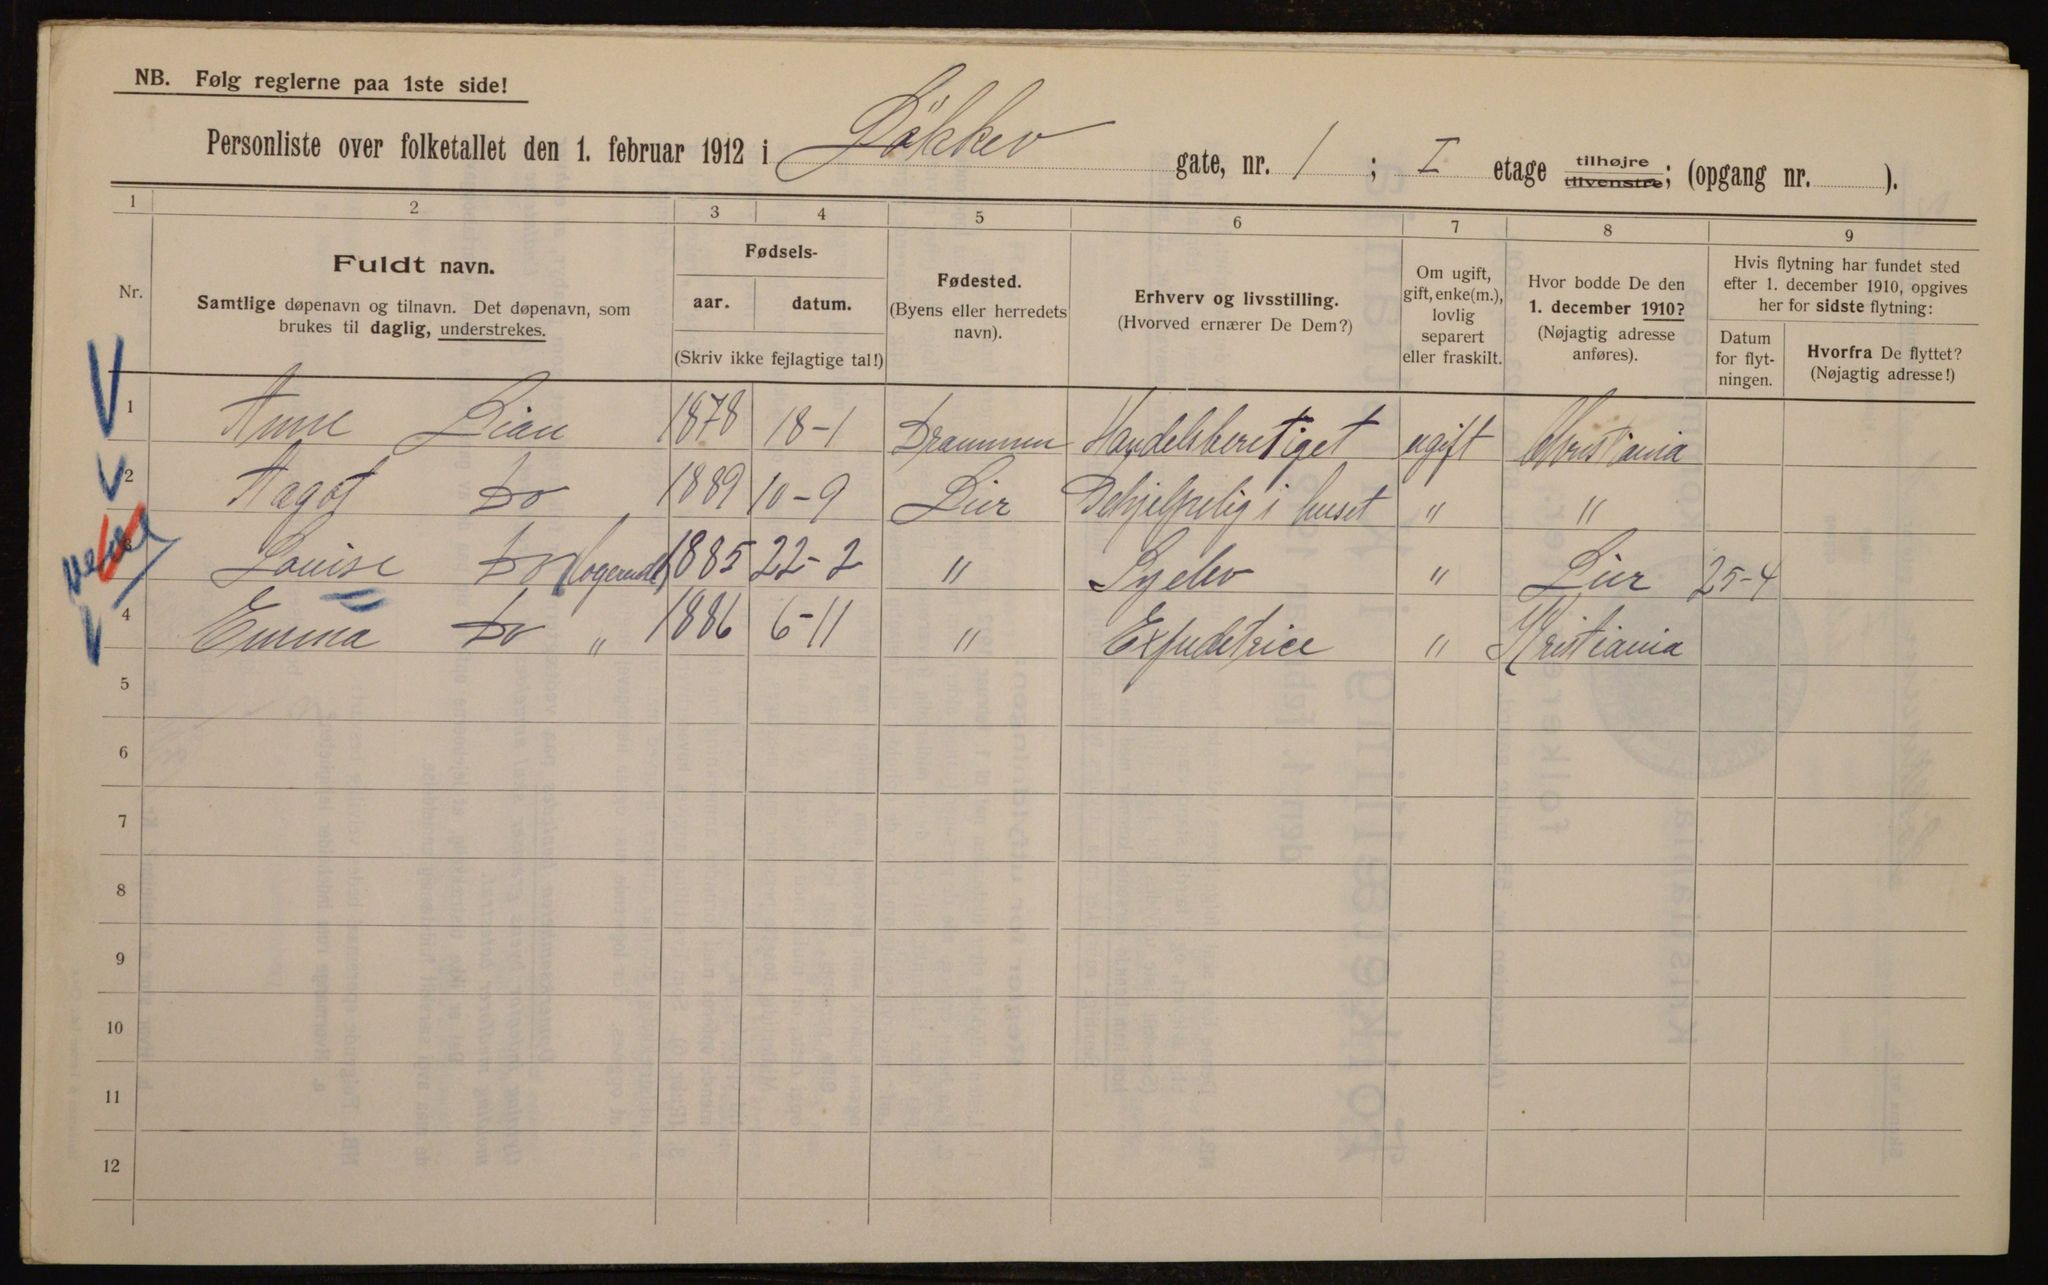 NB. Følg reglerne paa 1ste side!
Personliste over folketallet den 1. februar 1912 i Løkkev gate, nr. 1 ; I etage tilhøjre tilvenstre; (opgang nr. ).
1 2 3 4 5 6 7 8 9
Nr.
Fuldt navn.
Samtlige døpenavn og tilnavn. Det døpenavn, som
brukes til daglig, understrekes.
Fødsels-
aar. datum.
(Skriv ikke fejlagtige tal!)
Fødested.
(Byens eller herredets
navn).
Erhverv og livsstilling.
(Hvorved ernærer De Dem?)
Om ugift,
gift, enke(m.),
lovlig
separert
eller fraskilt.
Hvor bodde De den
1. december 1910?
(Nøjagtig adresse
anføres).
Hvis flytning har fundet sted
efter 1. december 1910, opgives
her for sidste flytning:
Datum
for flyt-
ningen.
Hvorfra De flyttet?
(Nøjagtig adresse!)
1 Anne Lian 1878 18-1 Drammen Handelsberetiget ugift Christiania
2 Aagot Do 1889 10-9 Lier Behjelpelig i huset " "
3 Louise Do (logerende) 1885 22-2 " Syelev " Lier 25-4
4 Emma Do " 1886 6-11 " Expeditrice " Kristiania
5
6
7
8
9
10
11
12